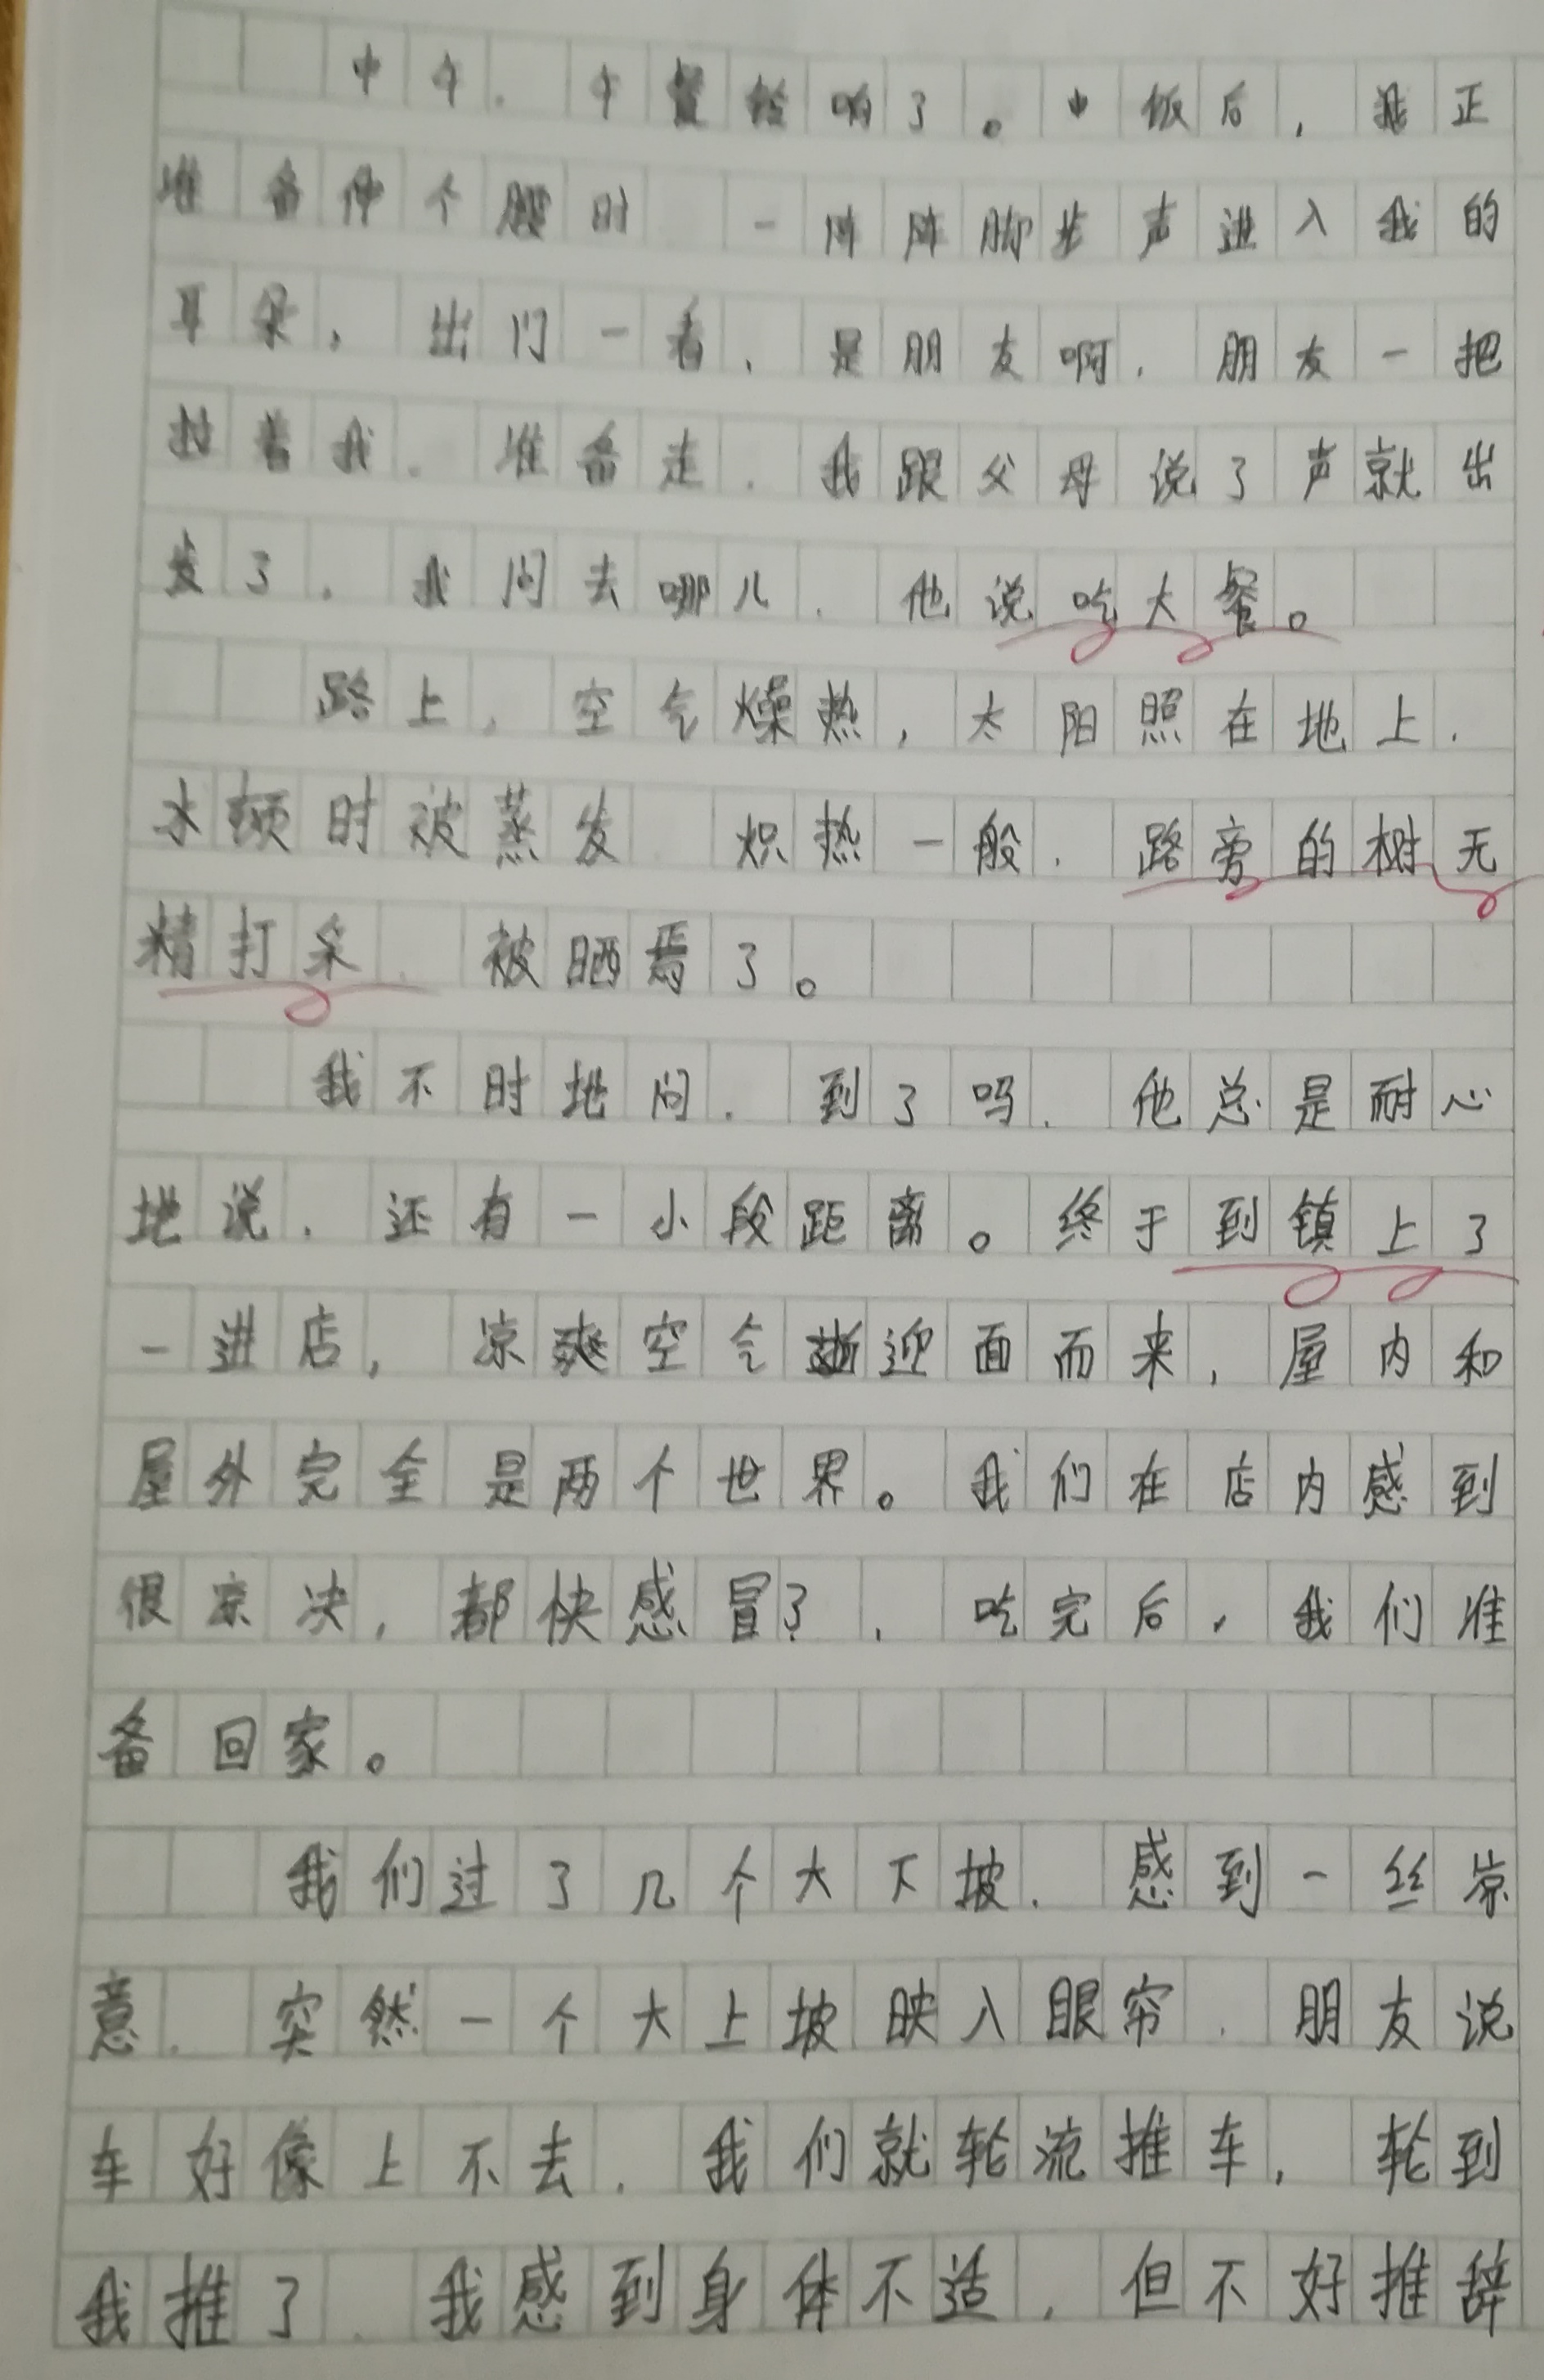 中午，午餐铃响了。中饭后，我正
准备伸个腰时，一阵阵脚步声进入我的
耳朵，出门一看，是朋友啊，朋友一把
拉着我，准备走，我跟父母说了声就出
发了，我问去哪儿，他说吃大餐。
路上，空气燥热，太阳照在地上，
水顿时被蒸发，炽热一般，路旁的树无
精打采，被晒焉了。
我不时地问，到了吗，他总是耐心
地说，还有一小段距离。终于到镇上了
一进店，凉爽空气迎面而来，屋内和
屋外完全是两个世界。我们在店内感到
很凉决，都快感冒了，吃完后，我们准
备回家。
我们过了几个大下坡，感到一丝凉
意，突然一个大上坡映入眼帘，朋友说
车好像上不去，我们就轮流推车，轮到
我推了，我感到身体不适，但不好推辞